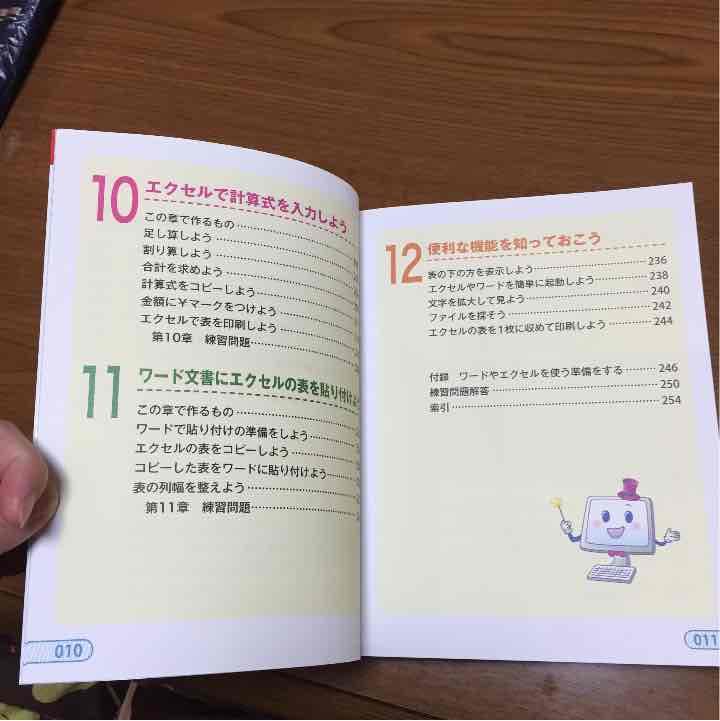 10 エクセルで計算式を入力しよう
この章で作るもの
足し算しよう
割り算しよう
合計を求めよう
計算式をコピーしよう
金額に¥マークをつけよう
エクセルで表を印刷しよう
第10章 練習問題
11 ワード文書にエクセルの表を貼り付けよ
この章で作るもの
ワードで貼り付けの準備をしよう
エクセルの表をコピーしよう
コピーした表をワードに貼り付けよう
表の列幅を整えよう
第11章 練習問題
010
12 便利な機能を知っておこう
表の下の方を表示しよう 236
エクセルやワードを簡単に起動しよう 238
文字を拡大して見よう 240
ファイルを探そう 242
エクセルの表を1枚に収めて印刷しよう 244
付録 ワードやエクセルを使う準備をする 246
練習問題解答 250
索引 254
011